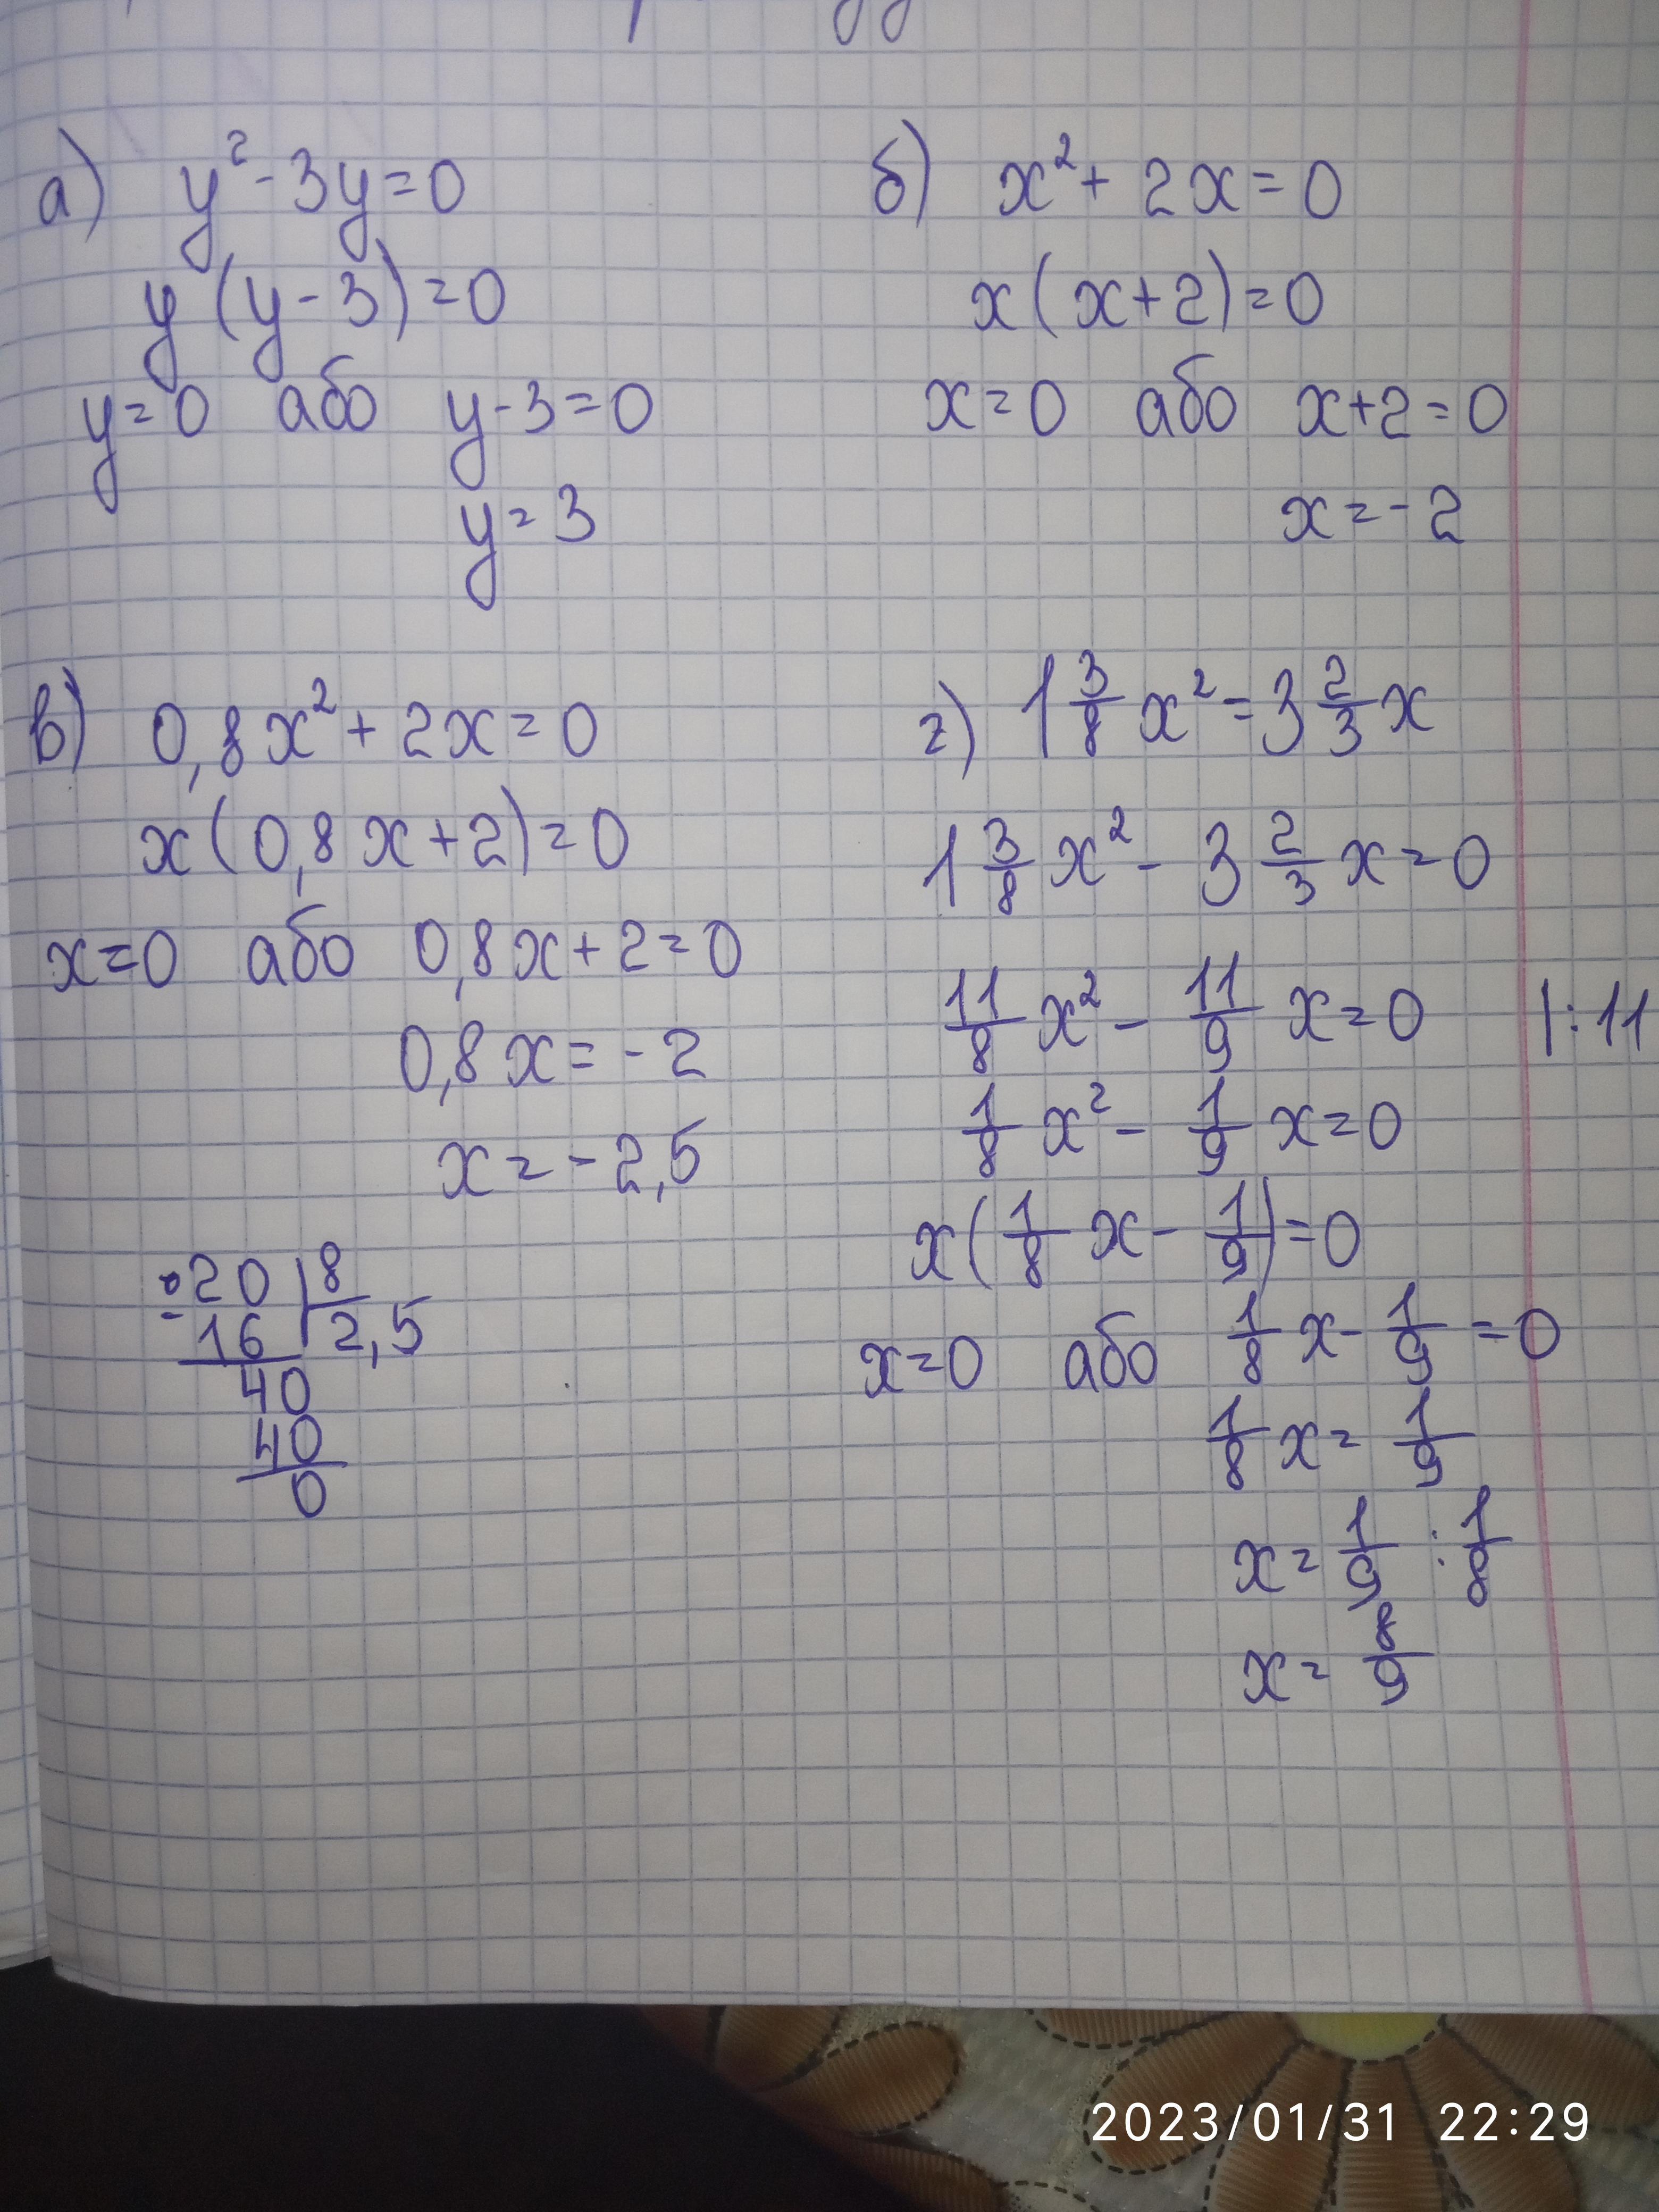 а) y² - 3y = 0
y(y - 3) = 0
y = 0 або y - 3 = 0
y = 3
б) x² + 2x = 0
x(x + 2) = 0
x = 0 або x + 2 = 0
x = -2
в) 0,8x² + 2x = 0
x(0,8x + 2) = 0
x = 0 або 0,8x + 2 = 0
0,8x = -2
x = -2,5
20 | 8
- 16 | 2,5
40
40
0
г) 1 3/8 x² = 3 2/3 x
1 3/8 x² - 3 2/3 x = 0
11/8 x² - 11/9 x = 0 |:11
1/8 x² - 1/9 x = 0
x(1/8 x - 1/9) = 0
x = 0 або 1/8 x - 1/9 = 0
1/8 x = 1/9
x = 1/9 : 1/8
x = 8/9
2023/01/31 22:29